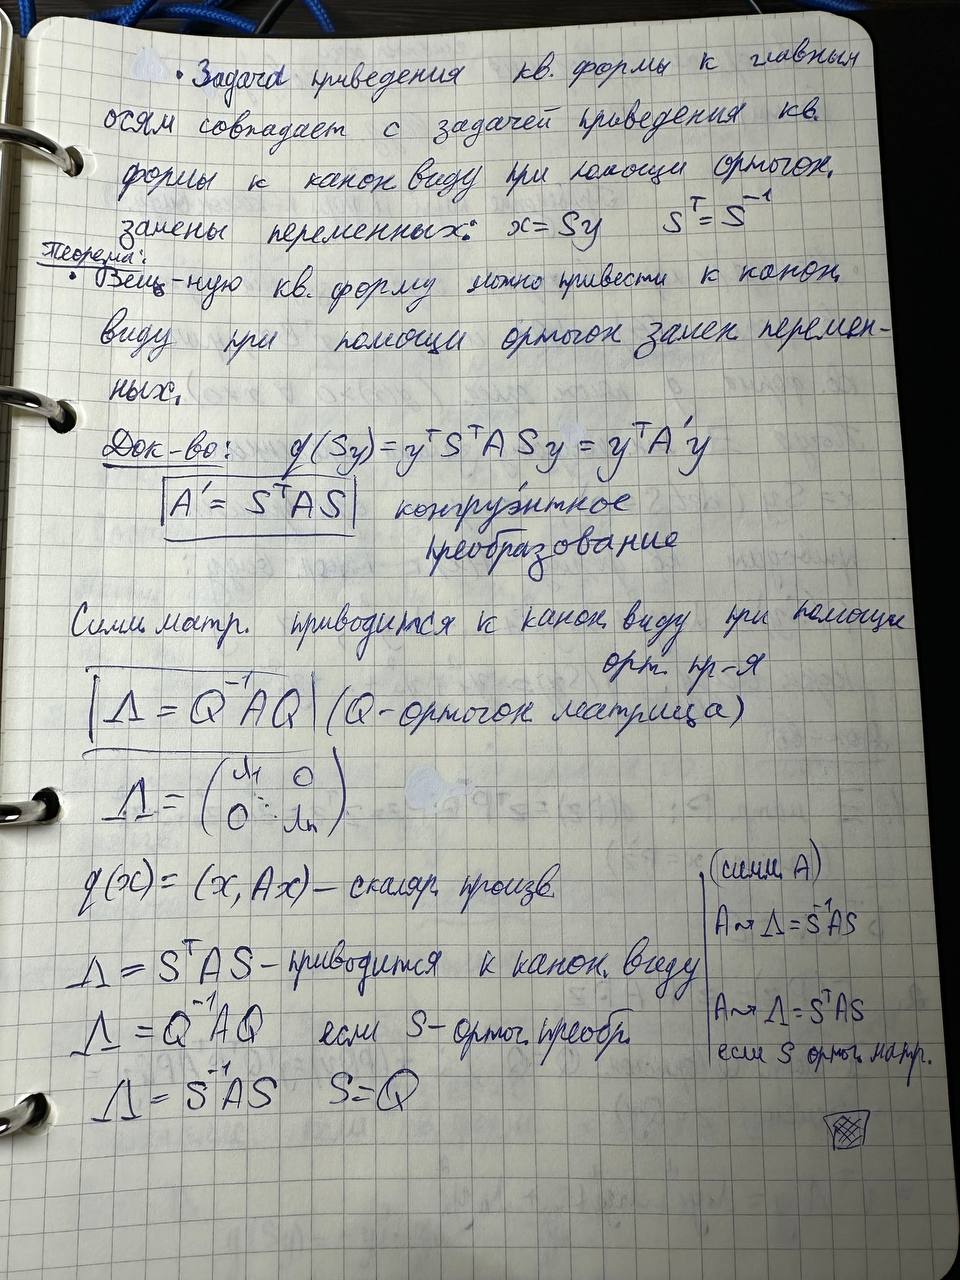 • Задача приведения кв. формы к главным
осям совпадает с задачей приведения кв.
формы к канон виду при помощи ортогон.
замены переменных: x = Sy S^T = S^-1
Теорема:
• Вещ-ную кв. форму можно привести к канон.
виду при помощи ортогон замен. перемен-
ных.
Док-во: q(Sy) = y^T S^T A S y = y^T A' y
A' = S^T A S конгруэнтное
преобразование
Симм. матр. приводится к канон. виду при помощи
орт. пр-я
Λ = Q^-1 A Q (Q - ортогон матрица)
Λ = ( λ1 0
0 ⋱ λn )
q(x) = (x, Ax) – скаляр. произв.
Λ = S^T A S – приводится к канон. виду
Λ = Q^-1 A Q если S - ортог. преобр.
Λ = S^-1 A S S = Q
(симм. A)
A ~ Λ = S^-1 A S
A ~ Λ = S^T A S
если S ортог. матр.